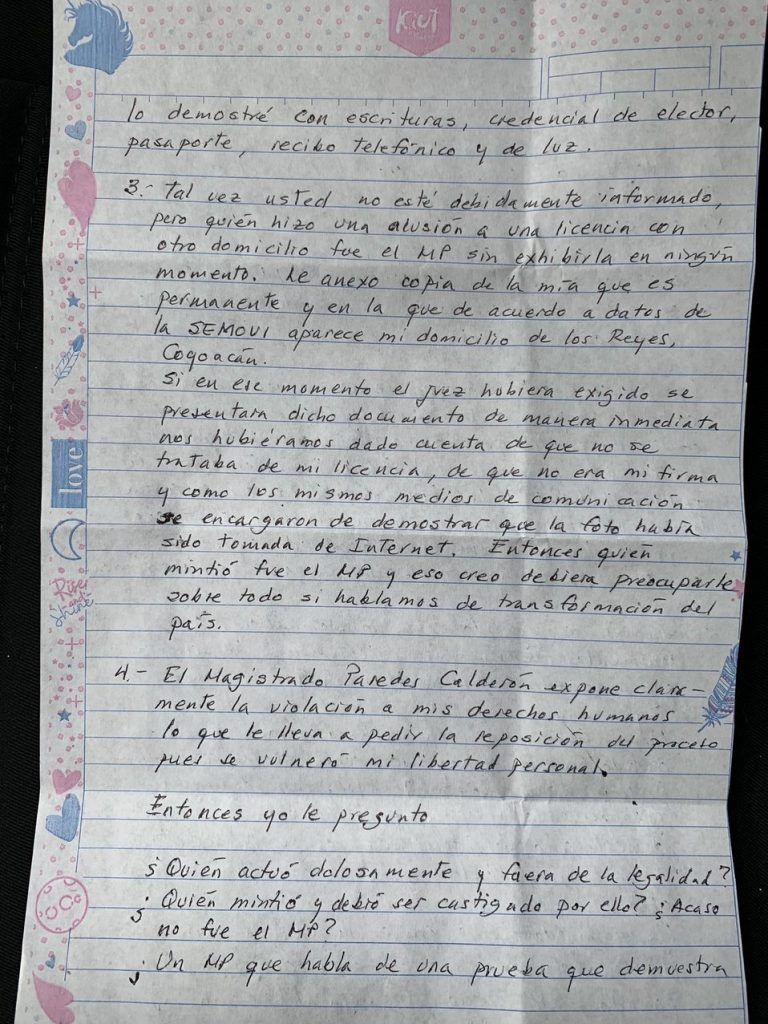 Kiut
lo demostré con escrituras, credencial de elector,
pasaporte, recibo telefónico y de luz.
3.- Tal vez usted no esté debidamente informado,
pero quién hizo una alusión a una licencia con
otro domicilio fue el MP sin exhibirla en ningún
momento. Le anexo copia de la mía que es
permanente y en la que de acuerdo a datos de
la SEMOVI aparece mi domicilio de los Reyes,
Coyoacán.
Si en ese momento el juez hubiera exigido se
presentara dicho documento de manera inmediata
nos hubiéramos dado cuenta de que no se
trataba de mi licencia, de que no era mi firma
y como los mismos medios de comunicación
se encargaron de demostrar que la foto había
sido tomada de Internet. Entonces quién
mintió fue el MP y eso creo debiera preocuparle
sobre todo si hablamos de transformación del
país.
4.- El Magistrado Paredes Calderón expone clara-
mente la violación a mis derechos humanos
lo que le lleva a pedir la reposición del proceso
pues se vulneró mi libertad personal.
Entonces yo le pregunto
¿Quién actuó dolosamente y fuera de la legalidad?
¿Quién mintió y debió ser castigado por ello? ¿Acaso
no fue el MP?
¿Un MP que habla de una prueba que demuestra
love
Rise and Shine